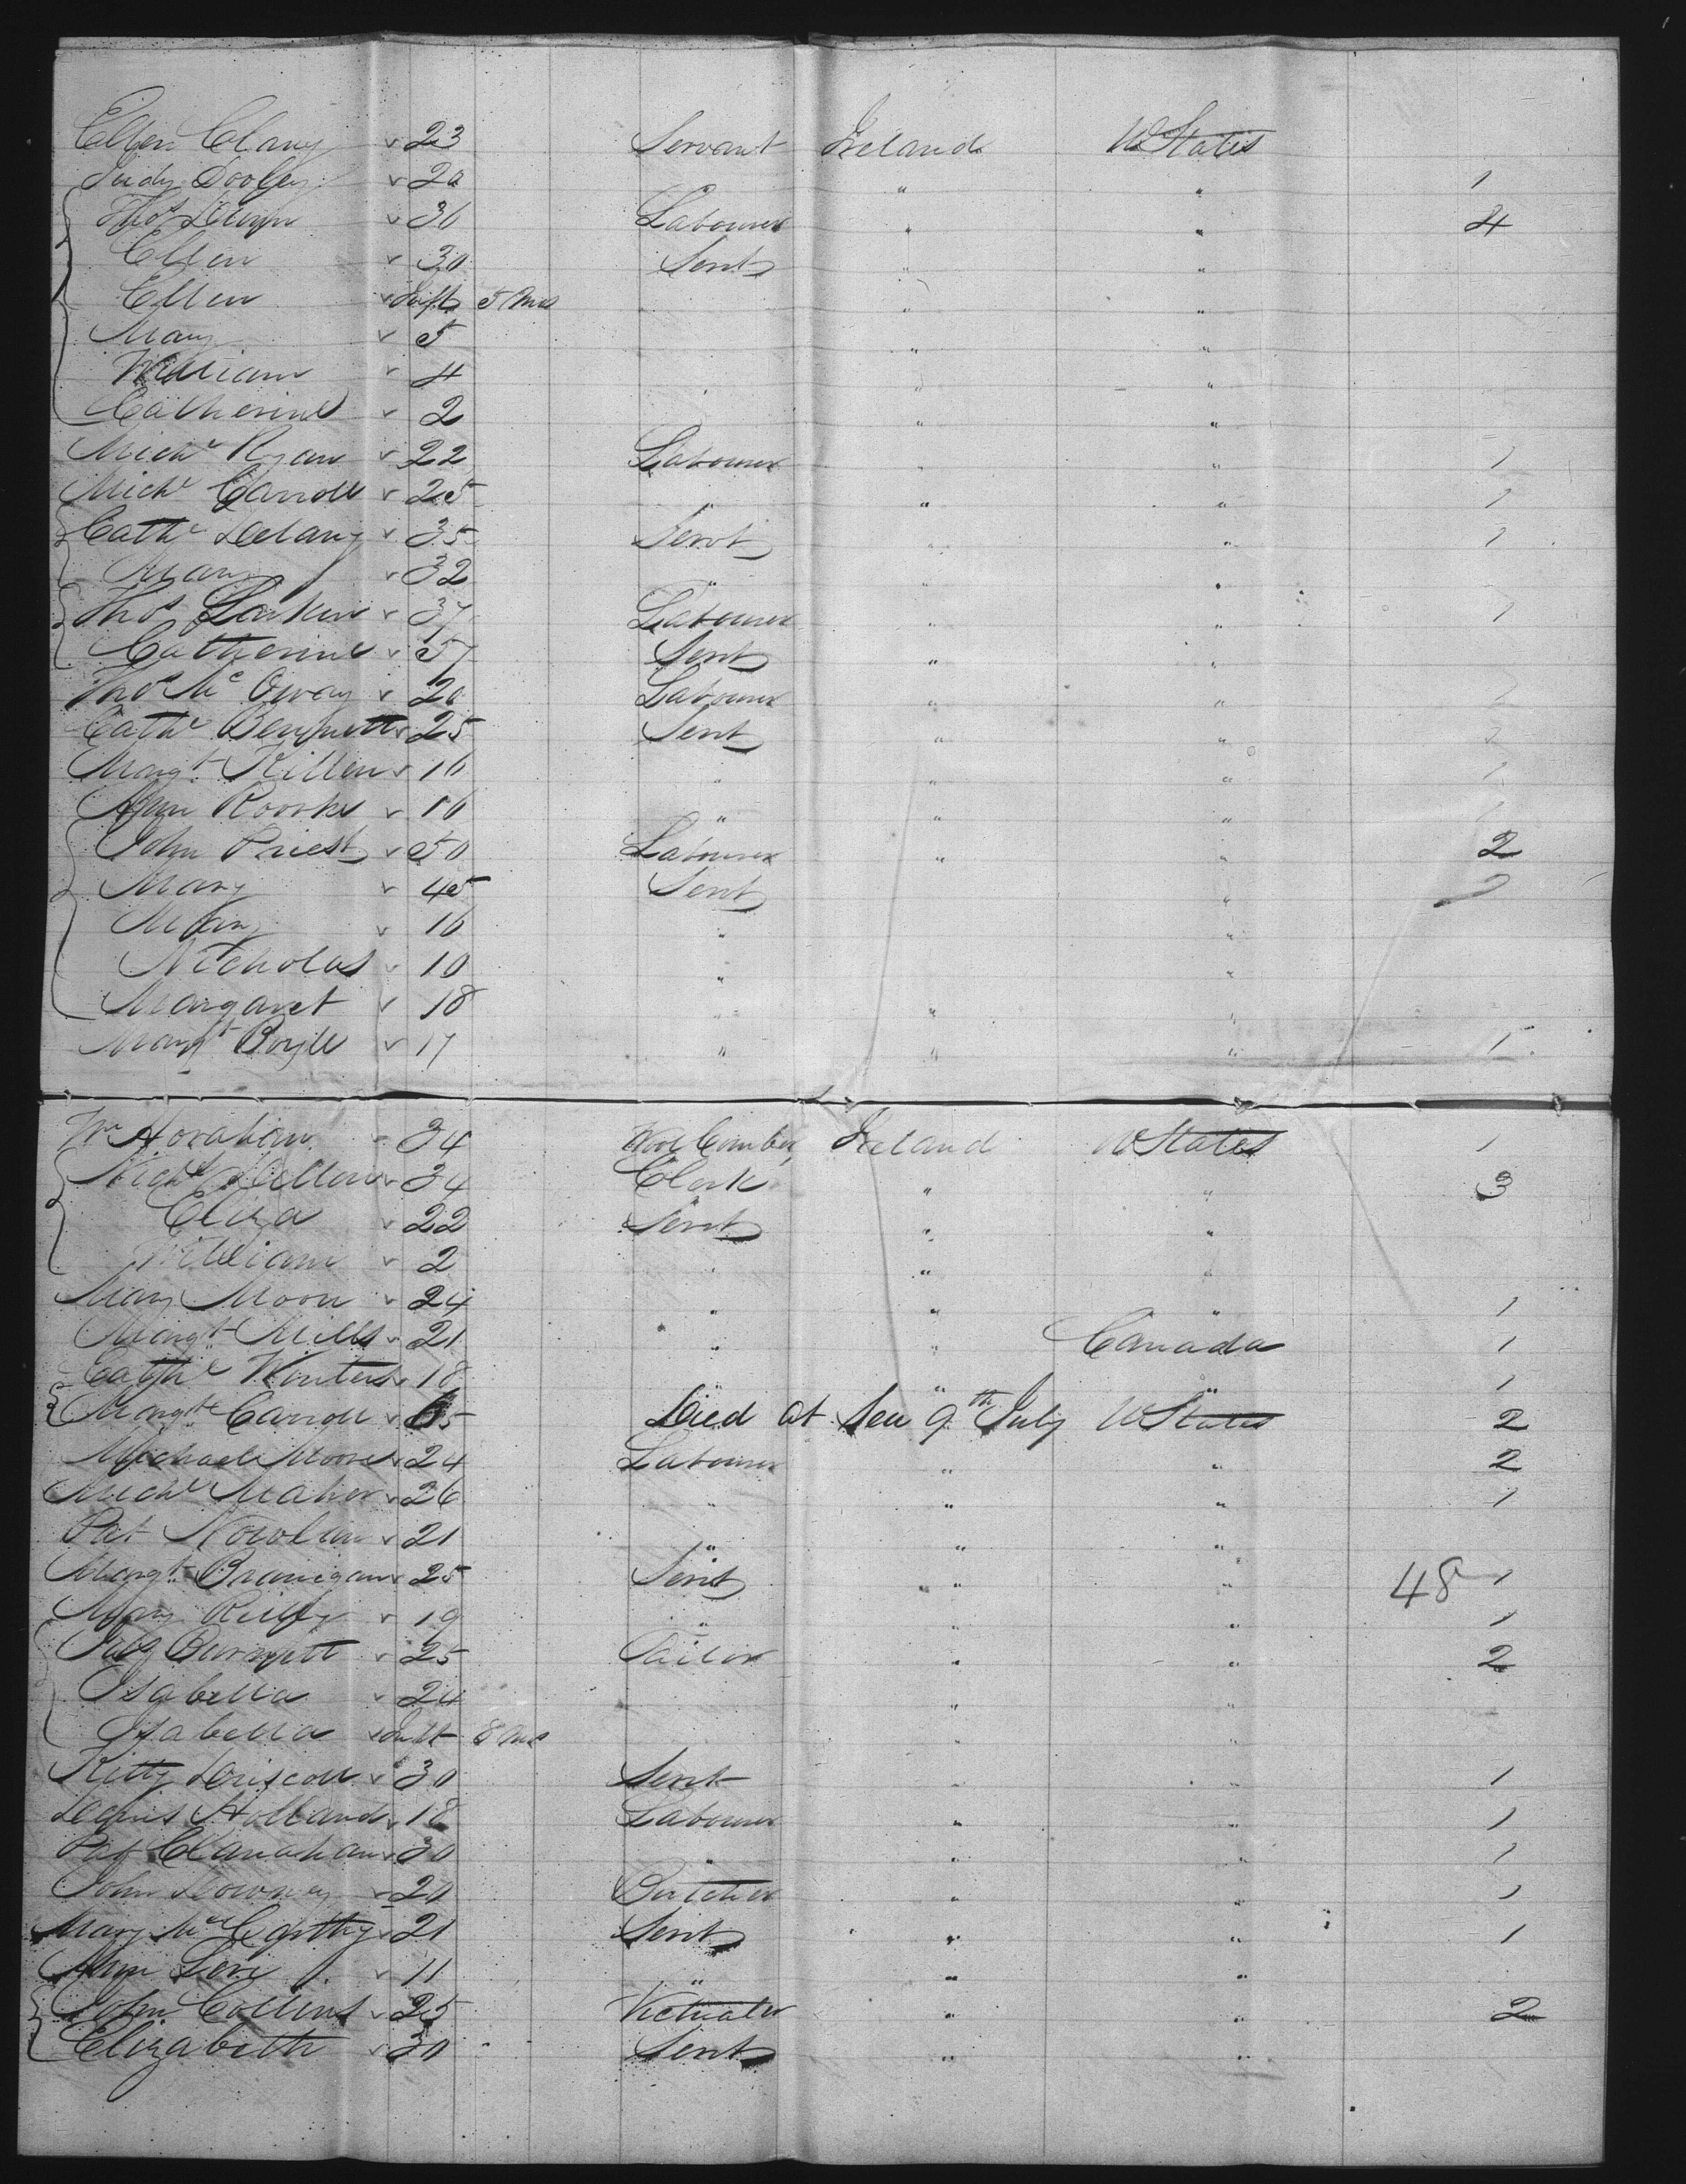 Ellen Clany 23 Servant Ireland U States
Judy Dooley 20 " " 1
Thos 30 Labourer " " 4
Ellen 30 Servt " "
Ellen Inft 5 Mos " "
Mary 5 " "
William 4 " "
Catherine 2 " "
Michl Ryan 22 Labourer " " 1
Michl Carroll 25 " " " 1
Cathe Delany 35 Servt " " 1
Mary 32 " " "
Thos Larkin 37 Labourer " " 1
Catherine 37 Servt " "
Thos Mc 20 Labourer " "
Cathe Bennett 25 Servt " "
Margt Killen 16 " " " 1
Ann Roorke 16 " " "
John Priest 50 Labourer " " 2
Mary 45 Servt "
Mary 16 " "
Nicholas 10 " "
Margaret 18 " " "
Margt Boyle 17 " " " 1
Wm Horahan 34 Wool Comber Ireland U States 1
Nichs 34 Clerk " " 3
Eliza 22 Servt " "
William 2 " " "
Mary Moon 24 " " " 1
Margt Mills 21 " " Canada 1
Cathe Winters 18 " " " 1
Margte Carroll 65 Died at Sea 9th July U States 2
Michael Moore 24 Labourer " " 2
Michl Maher 26 " " " 1
Pat Nowlan 21 " " "
Margt Branigan 25 Servt " " 48 1
Mary Reilly 19 " " " 1
25 Tailor " " 2
Isabella 24 " "
Isabella Inft 8 Mos " "
Kitty Driscoll 30 Servt " " 1
Denis Holland 18 Labourer " " 1
Pat Clanahan 30 " " 1
John Downey 20 Butcher " " 1
Mary McCarthy 21 Servt " " 1
Ann 11 " " "
John Collins 25 Victualer " " 2
Elizabeth 30 Servt " "